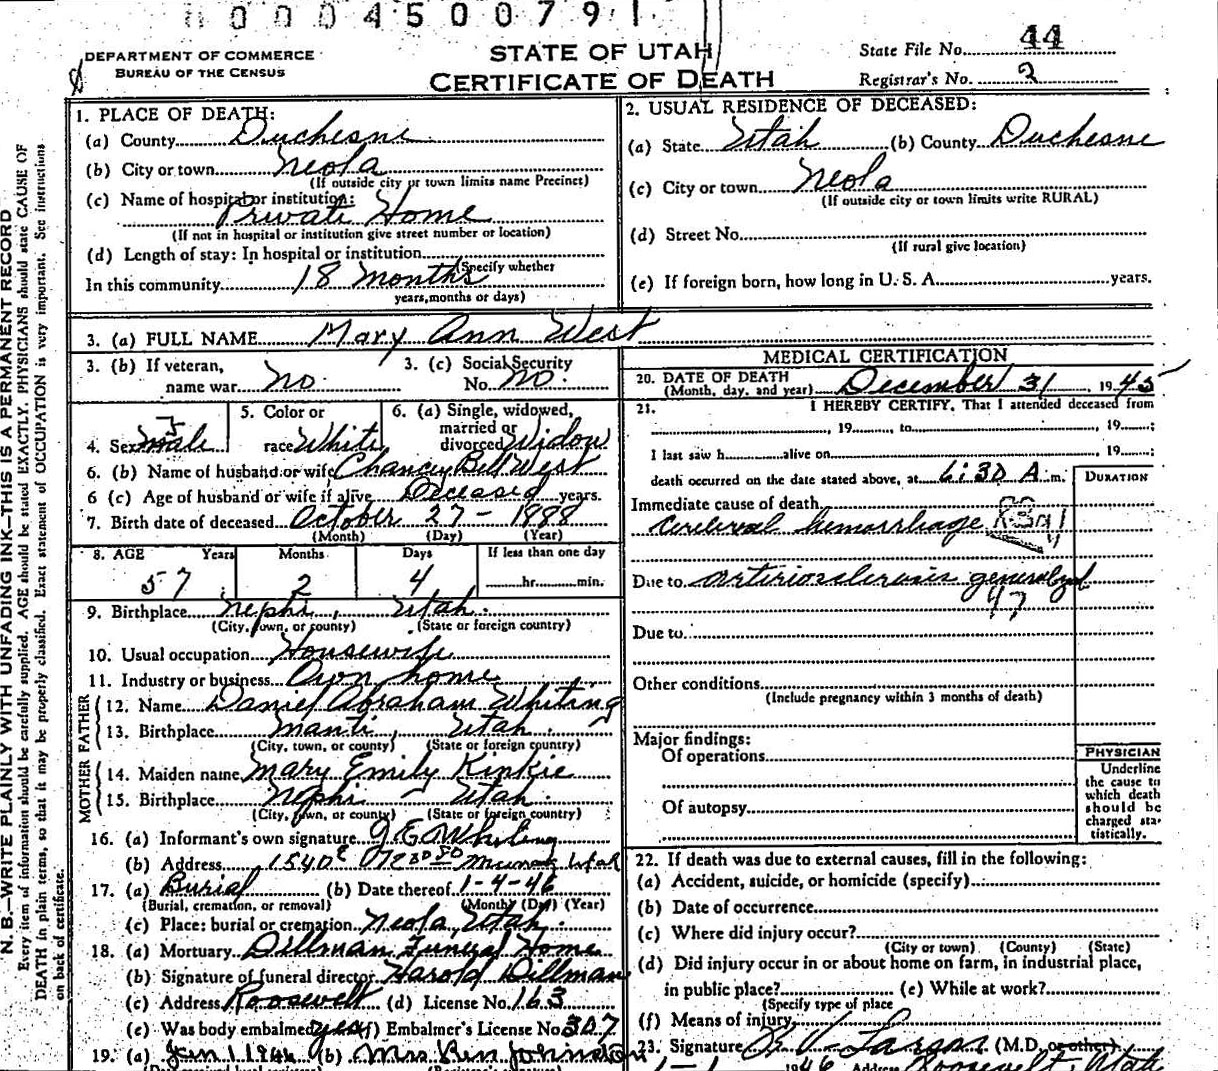 0004500791
DEPARTMENT OF COMMERCE
BUREAU OF THE CENSUS
STATE OF UTAH
CERTIFICATE OF DEATH
State File No. 44
Registrar's No. 2
N. B.—WRITE PLAINLY WITH UNFADING INK—THIS IS A PERMANENT RECORD
Every item of information should be carefully supplied. AGE should be stated EXACTLY. PHYSICIANS should state CAUSE OF
DEATH in plain terms, so that it may be properly classified. Exact statement of OCCUPATION is very important. See instructions
on back of certificate.
1. PLACE OF DEATH:
(a) County Duchesne
(b) City or town Neola
(If outside city or town limits name Precinct)
(c) Name of hospital or institution:
Private Home
(If not in hospital or institution give street number or location)
(d) Length of stay: In hospital or institution
(Specify whether
In this community 18 months
years, months or days)
2. USUAL RESIDENCE OF DECEASED:
(a) State Utah (b) County Duchesne
(c) City or town Neola
(If outside city or town limits write RURAL)
(d) Street No.
(If rural give location)
(e) If foreign born, how long in U. S. A. years.
3. (a) FULL NAME Mary Ann West
3. (b) If veteran,
name war no.
3. (c) Social Security
No. no.
4. Sex male F
5. Color or
race White
6. (a) Single, widowed,
married or
divorced Widow
6. (b) Name of husband or wife Chancey Bell West
6 (c) Age of husband or wife if alive Deceased years.
7. Birth date of deceased October 27 - 1888
(Month) (Day) (Year)
8. AGE Years Months Days If less than one day
57 2 4 hr. min.
9. Birthplace Nephi, Utah.
(City, town, or county) (State or foreign country)
10. Usual occupation Housewife
11. Industry or business Own home
FATHER
12. Name Daniel Abraham Whiting
13. Birthplace Manti, Utah.
(City, town, or county) (State or foreign country)
MOTHER
14. Maiden name Mary Emily Kinkie
15. Birthplace Nephi Utah.
(City, town, or county) (State or foreign country)
16. (a) Informant's own signature J. E. Whiting
(b) Address 1540 E Utah
17. (a) Burial (b) Date thereof 1-4-46
(Burial, cremation, or removal) (Month) (Day) (Year)
(c) Place: burial or cremation Neola, Utah.
18. (a) Mortuary Dillman Funeral Home
(b) Signature of funeral director Harold Dillman
(c) Address Roosevelt (d) License No. 163
(e) Was body embalmed yes (f) Embalmer's License No. 307
19. (a) Jan 1 1946 (b) Mrs Ben Johnston
MEDICAL CERTIFICATION
20. DATE OF DEATH
(Month, day, and year) December 31, 1945
21. I HEREBY CERTIFY, That I attended deceased from
, 19 , to , 19 ;
I last saw h alive on , 19 ;
death occurred on the date stated above, at 6:30 A m.
DURATION
Immediate cause of death
Cerebral hemorrhage
Due to arteriosclerosis
97
Due to
Other conditions
(Include pregnancy within 3 months of death)
Major findings:
Of operations
Of autopsy
PHYSICIAN
Underline
the cause to
which death
should be
charged sta-
tistically.
22. If death was due to external causes, fill in the following:
(a) Accident, suicide, or homicide (specify)
(b) Date of occurrence
(c) Where did injury occur?
(City or town) (County) (State)
(d) Did injury occur in or about home on farm, in industrial place,
in public place? (e) While at work?
(Specify type of place
(f) Means of injury
23. Signature Larson (M.D. or other)
1-1 1946 Address Roosevelt, Utah